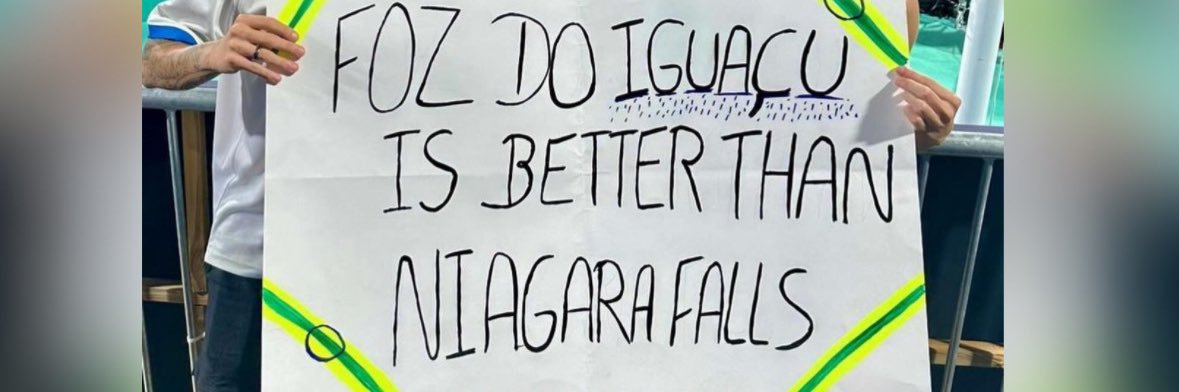 FOZ DO IGUAÇU
IS BETTER THAN
NIAGARA FALLS